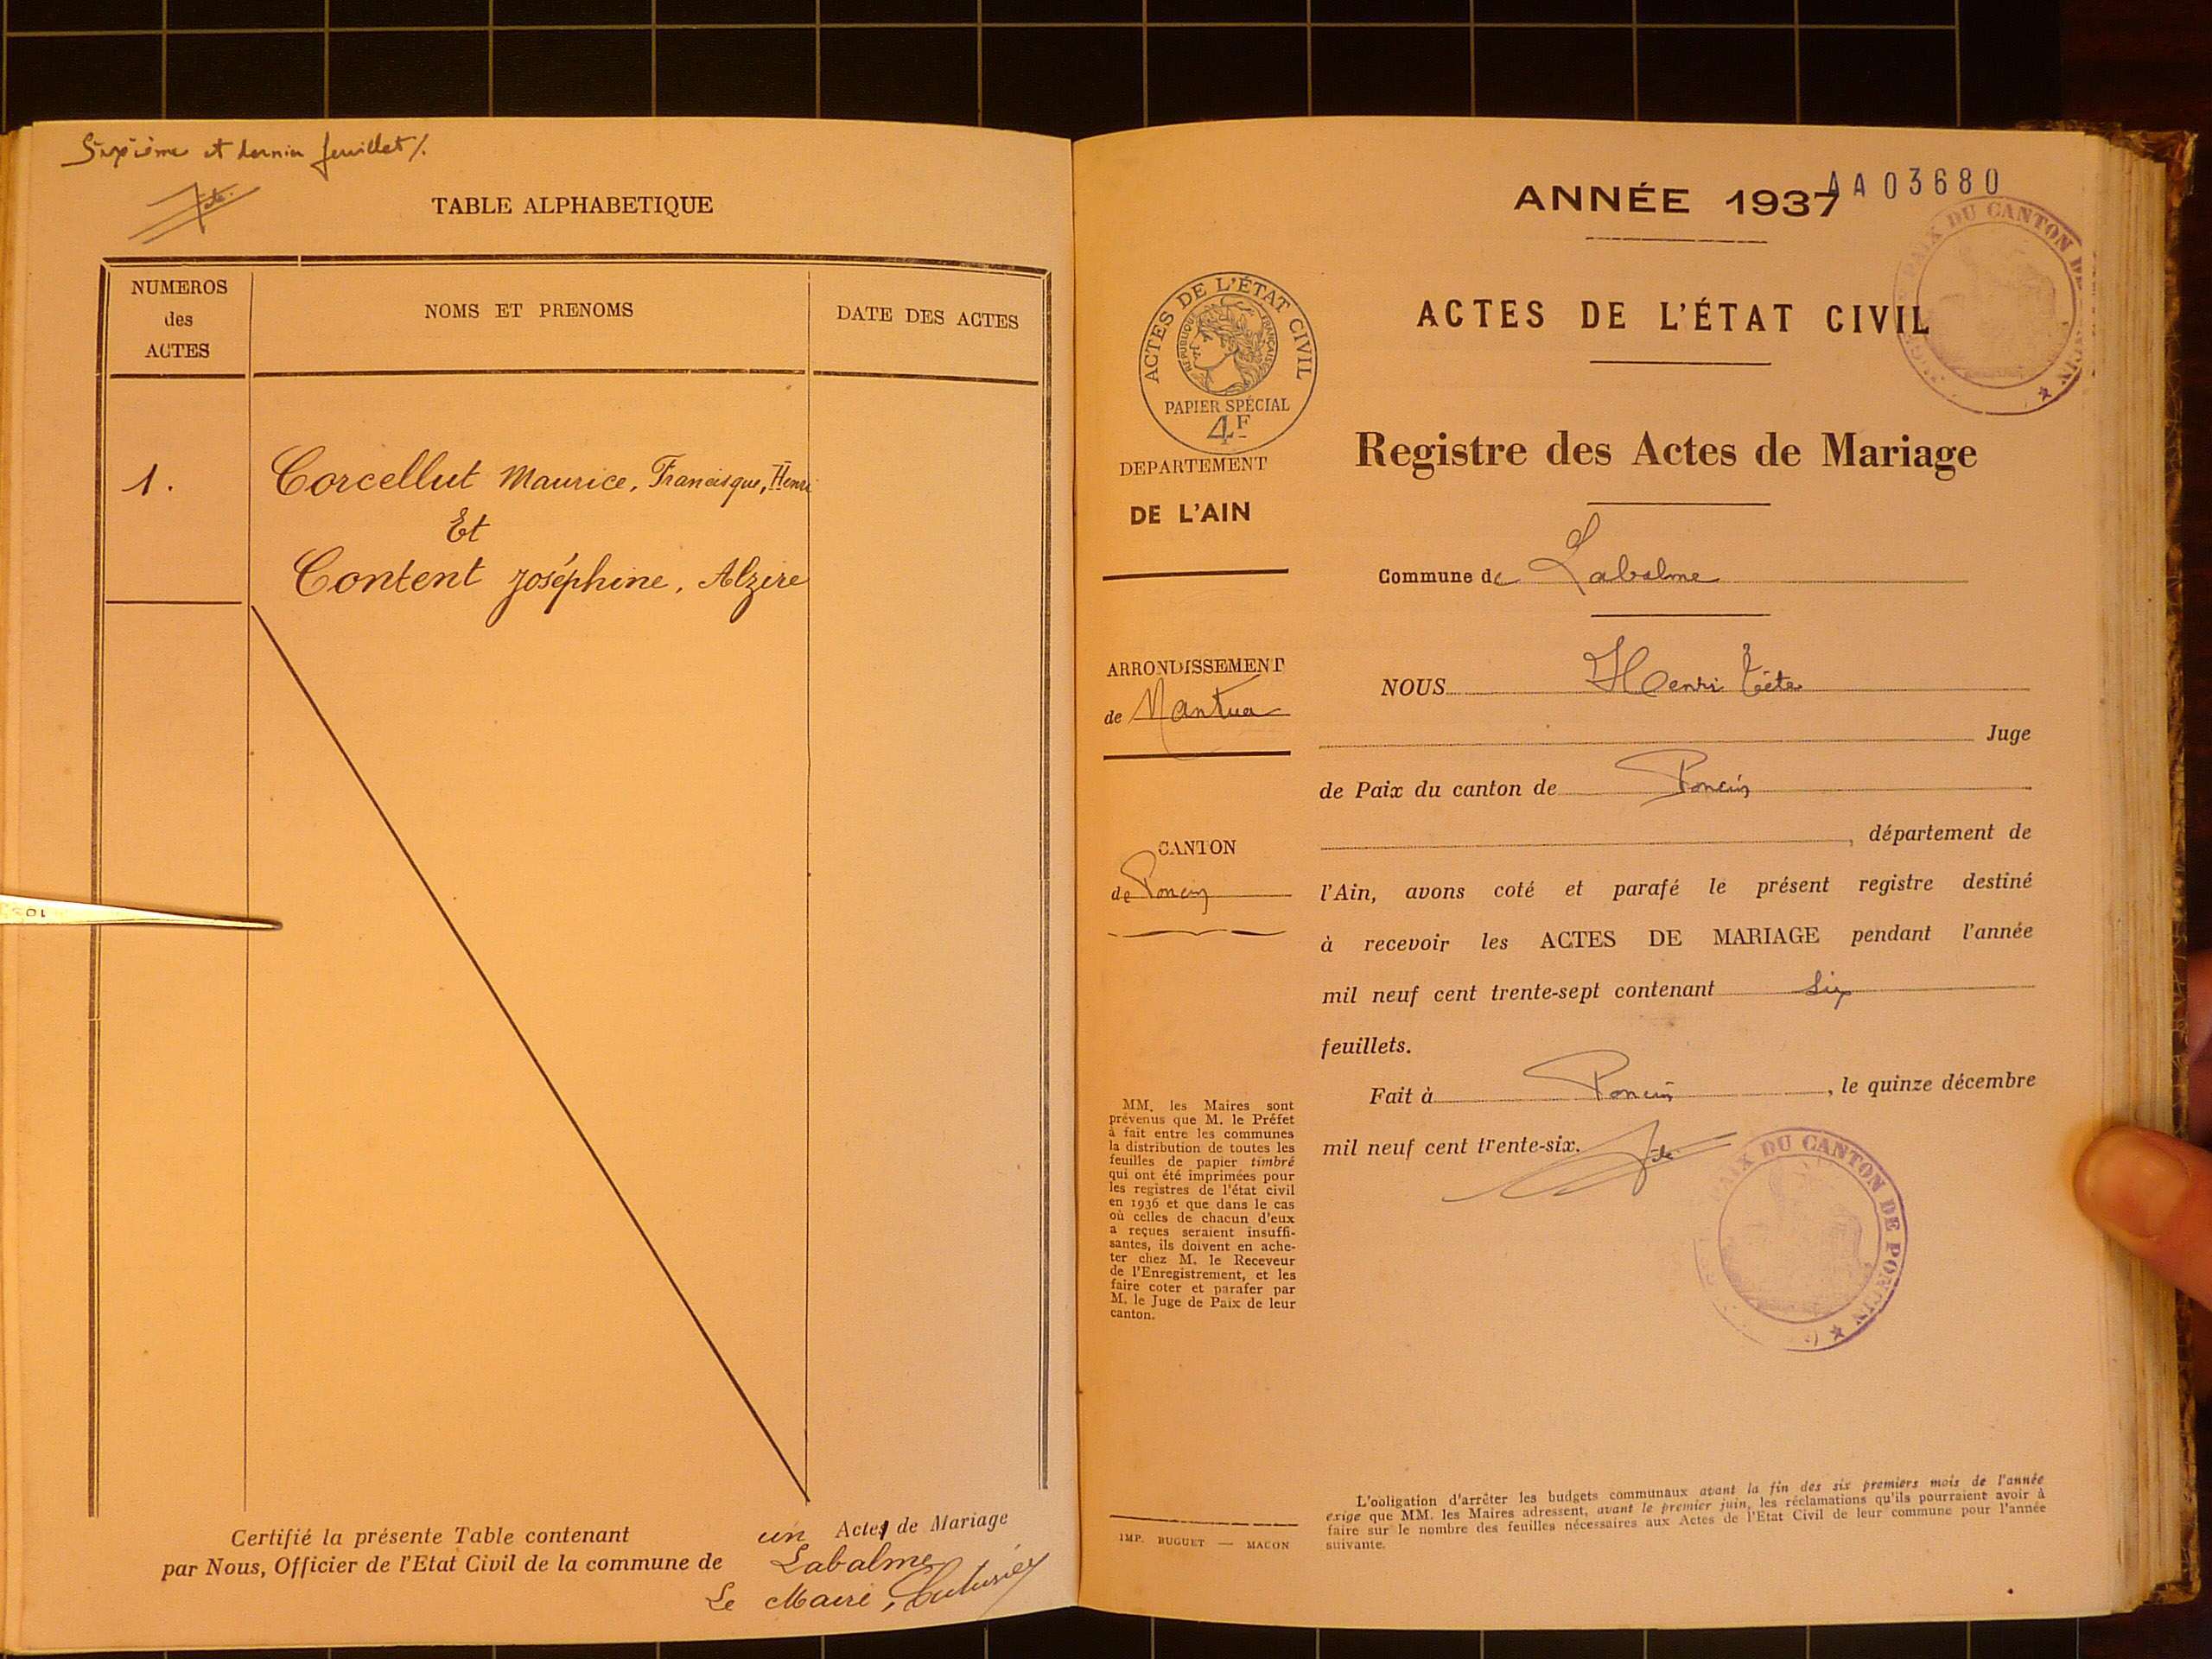 Sixième et dernier feuillet /.
TABLE ALPHABETIQUE
NUMEROS
des
ACTES
NOMS ET PRENOMS
DATE DES ACTES
1.
Corcellut Maurice, Francisque, Henri
Et
Content Joséphine, Alzire
Certifié la présente Table contenant un Actes de Mariage
par Nous, Officier de l'Etat Civil de la commune de Labalme
Le Maire,
ANNÉE 1937
AA03680
PAIX DU CANTON DE PONCIN
ACTES DE L'ÉTAT CIVIL
RÉPUBLIQUE FRANÇAISE
PAPIER SPÉCIAL
4F
DEPARTEMENT
DE L'AIN
ARRONDISSEMENT
de Nantua
CANTON
de Poncin
MM. les Maires sont
prévenus que M. le Préfet
à fait entre les communes
la distribution de toutes les
feuilles de papier timbré
qui ont été imprimées pour
les registres de l'état civil
en 1936 et que dans le cas
où celles de chacun d'eux
a reçues seraient insuffi-
santes, ils doivent en ache-
ter chez M. le Receveur
de l'Enregistrement, et les
faire coter et parafer par
M. le Juge de Paix de leur
canton.
IMP. BUGUET — MACON
ACTES DE L'ÉTAT CIVIL
Registre des Actes de Mariage
Commune de Labalme
NOUS Henri Tête
Juge
de Paix du canton de Poncin
, département de
l'Ain, avons coté et parafé le présent registre destiné
à recevoir les ACTES DE MARIAGE pendant l'année
mil neuf cent trente-sept contenant six
feuillets.
Fait à Poncin, le quinze décembre
mil neuf cent trente-six.
PAIX DU CANTON DE PONCIN
L'obligation d'arrêter les budgets communaux avant la fin des six premiers mois de l'année
exige que MM. les Maires adressent, avant le premier juin, les réclamations qu'ils pourraient avoir à
faire sur le nombre des feuilles nécessaires aux Actes de l'Etat Civil de leur commune pour l'année
suivante.